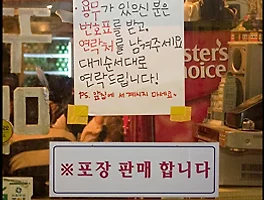 용무가 있으신 분은
번호표를 받고,
연락처를 남겨주세요
대기순서대로
연락드립니다!
PS. 앞장에 세계시지 마세요~
ster's
Choice
※포장 판매 합니다